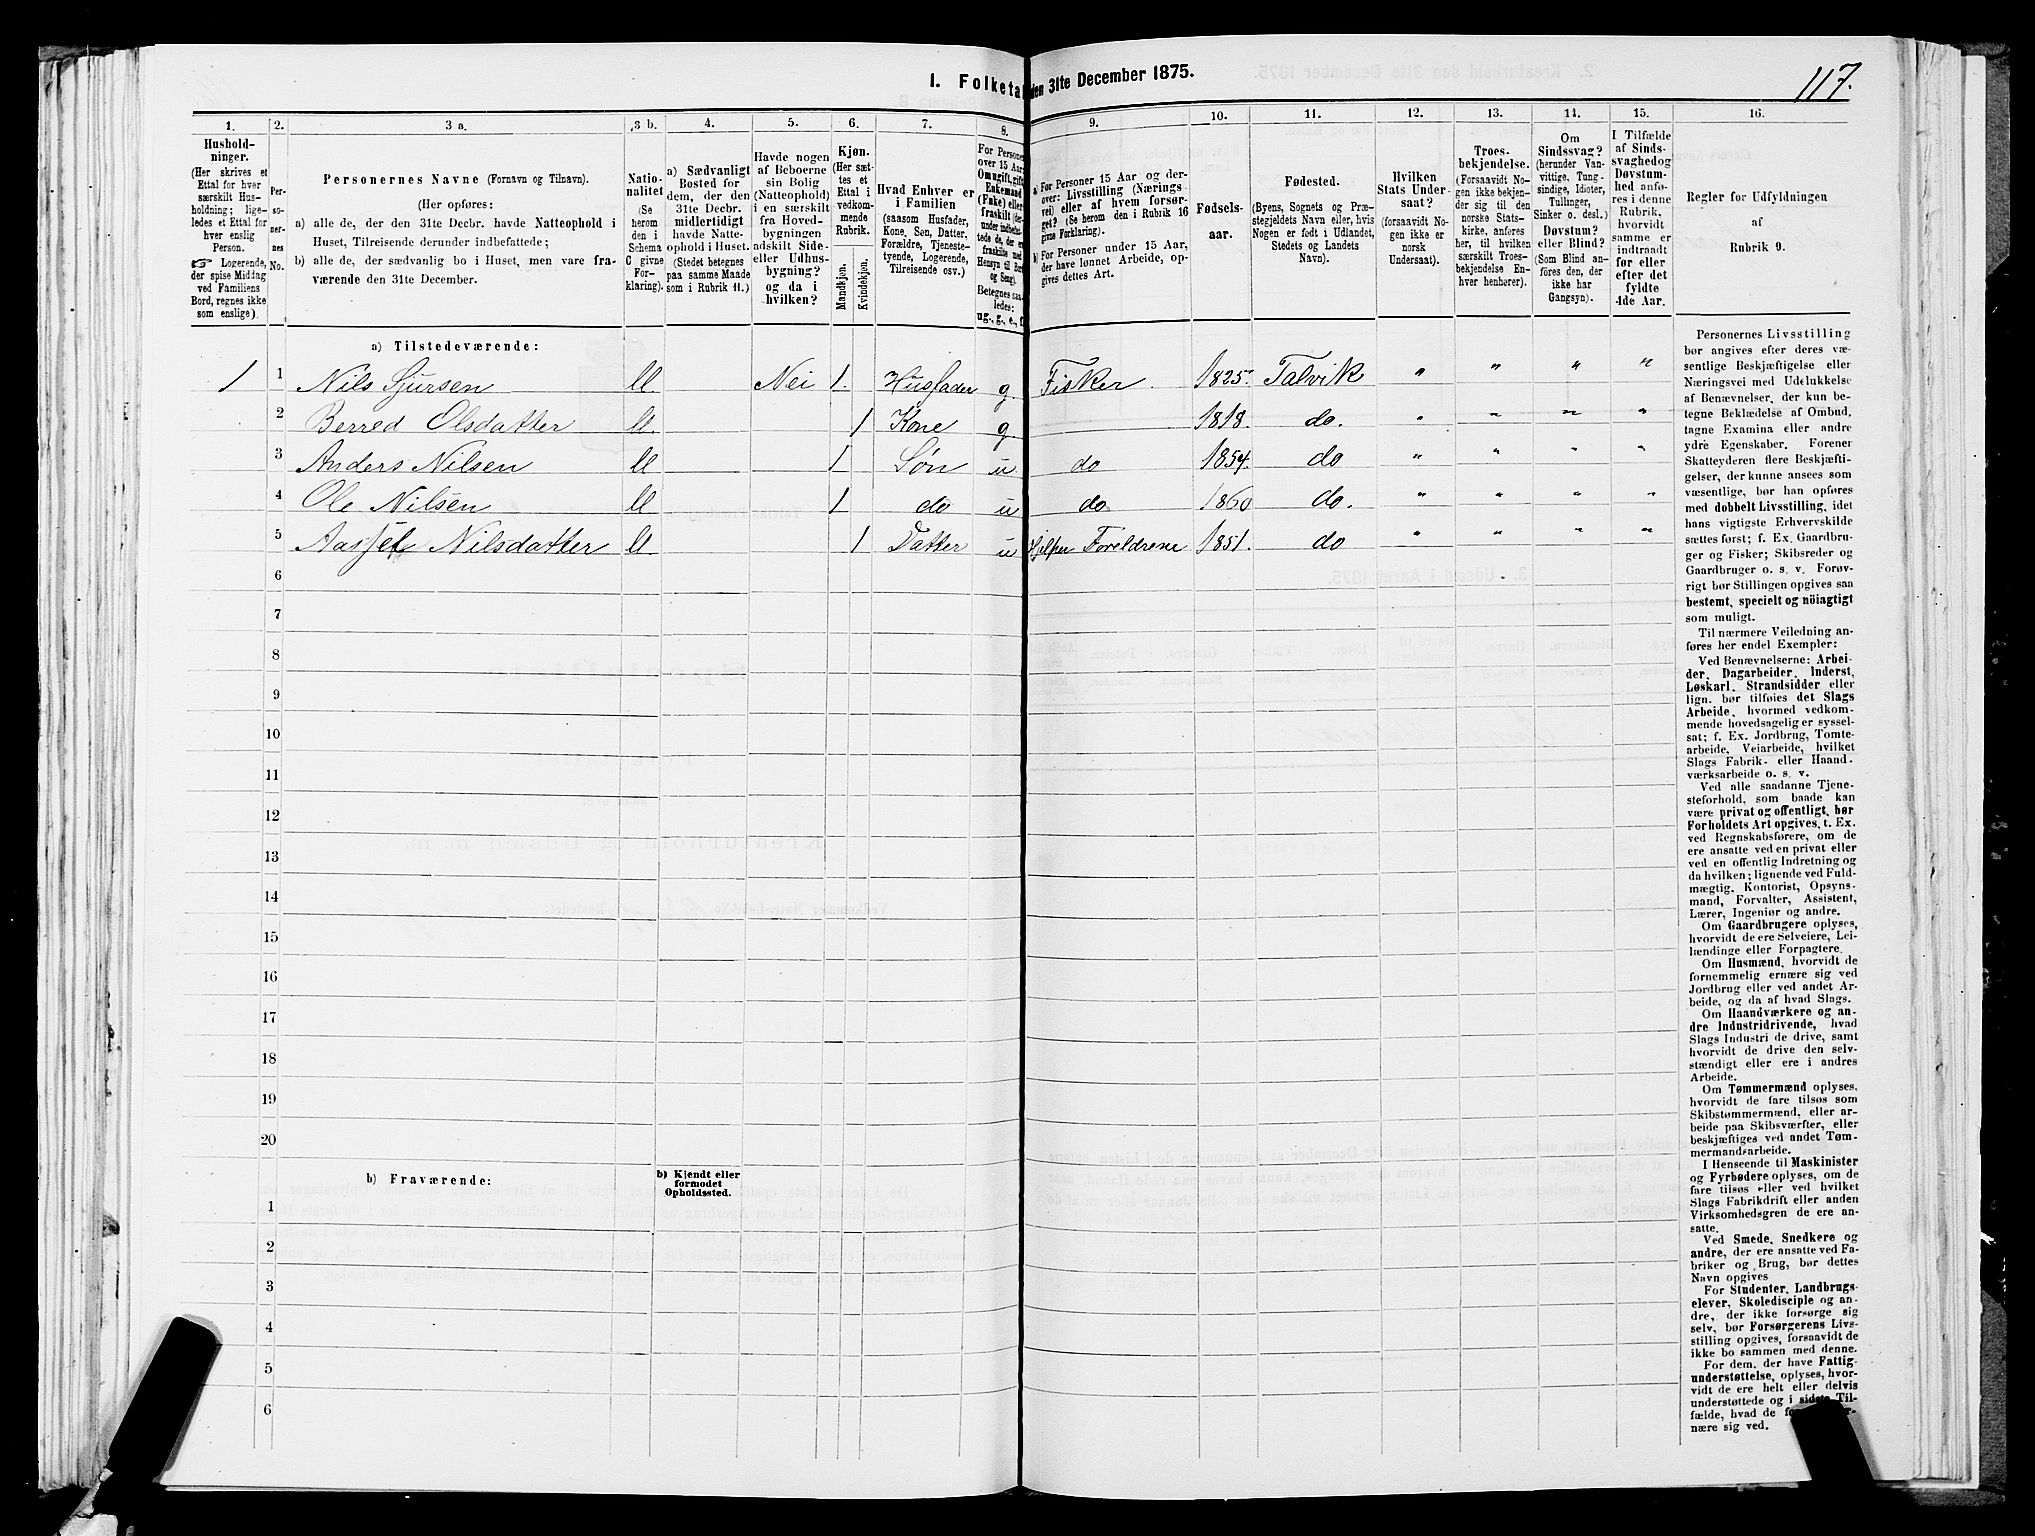 1. Folketal den 31te December 1875.
117.
1. 2. 3 a. 3 b. 4. 5. 6. 7. 8. 9. 10. 11. 12. 13. 14. 15. 16.
Hushold-
ninger.
(Her skrives et
Ettal for hver
særskilt Hus-
holdning; lige-
ledes et Ettal for
hver enslig
Person.
☞ Logerende,
der spise Middag
ved Familiens
Bord, regnes ikke
som enslige).
Per-
so-
ner-
nes
No.
Personernes Navne (Fornavn og Tilnavn).
(Her opføres:
a) alle de, der den 31te Decbr. havde Natteophold i
Huset, Tilreisende derunder indbefattede;
b) alle de, der sædvanlig bo i Huset, men vare fra-
værende den 31te December.
Natio-
nalitet
(Se
herom
den i
Schema
C givne
For-
klaring).
a) Sædvanligt
Bosted for
dem, der den
31te Decbr.
midlertidigt
havde Natte-
ophold i Huset.
(Stedet betegnes
paa samme Maade
som i Rubrik 11.)
Havde nogen
af Beboerne
sin Bolig
(Natteophold)
i en særskilt
fra Hoved-
bygningen
adskilt Side-
eller Udhus-
bygning?
og da i
hvilken?
Kjøn.
(Her sæt-
tes et
Ettal i
vedkom-
mende
Rubrik.
Mandkjøn.
Kvindekjøn.
Hvad Enhver er
i Familien
(saasom Husfader,
Kone, Søn, Datter,
Forældre, Tjeneste-
tyende, Logerende,
Tilreisende osv.)
For Personer
over 15 Aar:
Om ugift, gift,
Enkemand
(Enke) eller
fraskilt
Betegnes saa-
ledes:
ug., g., e., f.
a) For Personer 15 Aar og der-
over: Livsstilling (Nærings-
vei) eller af hvem forsør-
get? (Se herom den i Rubrik 16
givne Forklaring).
b) For Personer under 15 Aar,
der have lønnet Arbeide, op-
gives dettes Art.
Fødsels-
aar.
Fødested.
(Byens, Sognets og Præ-
stegjeldets Navn eller, hvis
Nogen er født i Udlandet,
Stedets og Landets
Navn).
Hvilken
Stats Under-
saat?
(forsaavidt No-
gen ikke er
norsk
Undersaat).
Troes-
bekjendelse.
(Forsaavidt No-
gen ikke bekjen-
der sig til den
norske Stats-
kirke, anføres
her, til hvilken
særskilt Troes-
bekjendelse En-
hver henhører).
Om
Sindssvag?
(herunder Van-
vittige, Tung-
sindige, Idioter,
Tullinger,
Sinker o. desl.)
Døvstum?
eller Blind?
(Som Blind an-
føres den, der
ikke har
Gangsyn).
I Tilfælde
af Sinds-
svaghed og
Døvstum-
hed anfø-
res i denne
Rubrik,
hvorvidt
samme er
indtraadt
før eller
efter det
fyldte
4de Aar.
Regler for Udfyldningen
af
Rubrik 9.
a) Tilstedeværende:
1 1 Nils Sjursen U Nei 1. Husfader g. Fisker. 1825. Talvik " " " "
2 Berred Olsdatter U 1 Kone g 1818. do. " " " "
3 Anders Nilsen U 1 Søn u do 1854. do " " " "
4 Ole Nilsen U 1 do u do 1860 do. " " " "
5 Nilsdatter U 1 Datter u Hjelper Foreldrene 1851. do " " " "
6
7
8
9
10
11
12
13
14
15
16
17
18
19
20
b) Fraværende:
b) Kjendt eller
formodet
Opholdssted.
1
2
3
4
5
6
Personernes Livsstilling
bør angives efter deres væ-
sentlige Beskjæftigelse eller
Næringsvei med Udelukkelse
af Benævnelser, der kun be-
tegne Beklædelse af Ombud,
tagne Examina eller andre
ydre Egenskaber. Forener
Skatteyderen flere Beskjæfti-
gelser, der kunne ansees som
væsentlige, bør han opføres
med dobbelt Livsstilling, idet
hans vigtigste Erhvervskilde
sættes først; f. Ex. Gaardbru-
ger og Fisker; Skibsreder og
Gaardbruger o. s. v. Forøv-
rigt bør Stillingen opgives saa
bestemt, specielt og nöiagtigt
som muligt.
Til nærmere Veiledning an-
føres her endel Exempler:
Ved Benævnelserne: Arbei-
der, Dagarbeider, Inderst,
Løskarl, Strandsidder eller
lign. bør tilføies det Slags
Arbeide, hvormed vedkom-
mende hovedsagelig er syssel-
sat; f. Ex. Jordbrug, Tomte-
arbeide, Veiarbeide, hvilket
Slags Fabrik- eller Haand-
værksarbeide o. s. v.
Ved alle saadanne Tjene-
steforhold, som baade kan
være privat og offentligt, bør
Forholdets Art opgives, t. Ex.
ved Regnskabsførere, om de
ere ansatte ved en privat eller
ved en offentlig Indretning og
da hvilken; lignende ved Fuld-
mægtig, Kontorist, Opsyns-
mand, Forvalter, Assistent,
Lærer, Ingeniør og andre.
Om Gaardbrugere oplyses,
hvorvidt de ere Selveiere, Lei-
lændinge eller Forpagtere.
Om Husmænd, hvorvidt de
fornemmelig ernære sig ved
Jordbrug eller ved andet Ar-
beide, og da af hvad Slags.
Om Haandværkere og an-
dre Industridrivende, hvad
Slags Industri de drive, samt
hvorvidt de drive den selv-
stændigt eller ere i andres
Arbeide.
Om Tømmermænd oplyses,
hvorvidt de fare tilsøs som
Skibstømmermænd, eller ar-
beide paa Skibsværfter, eller
beskjæftiges ved andet Tøm-
mermandsarbeide.
I Henseende til Maskinister
og Fyrbødere oplyses, om de
fare tilsøs eller ved hvilket
Slags Fabrikdrift eller anden
Virksomhedsgren de ere an-
satte.
Ved Smede, Snedkere og
andre, der ere ansatte ved Fa-
briker og Brug, bør dettes
Navn opgives
For Studenter, Landbrugs-
elever, Skoledisciple og an-
dre, der ikke forsørge sig
selv, bør Forsørgerens Livs-
stilling opgives, forsaavidt de
ikke bo sammen med denne.
For dem, der have Fattig-
understøttelse, oplyses, hvor-
vidt de ere helt eller delvis
understøttede og i sidste Til-
fælde, hvad de
nære sig ved.